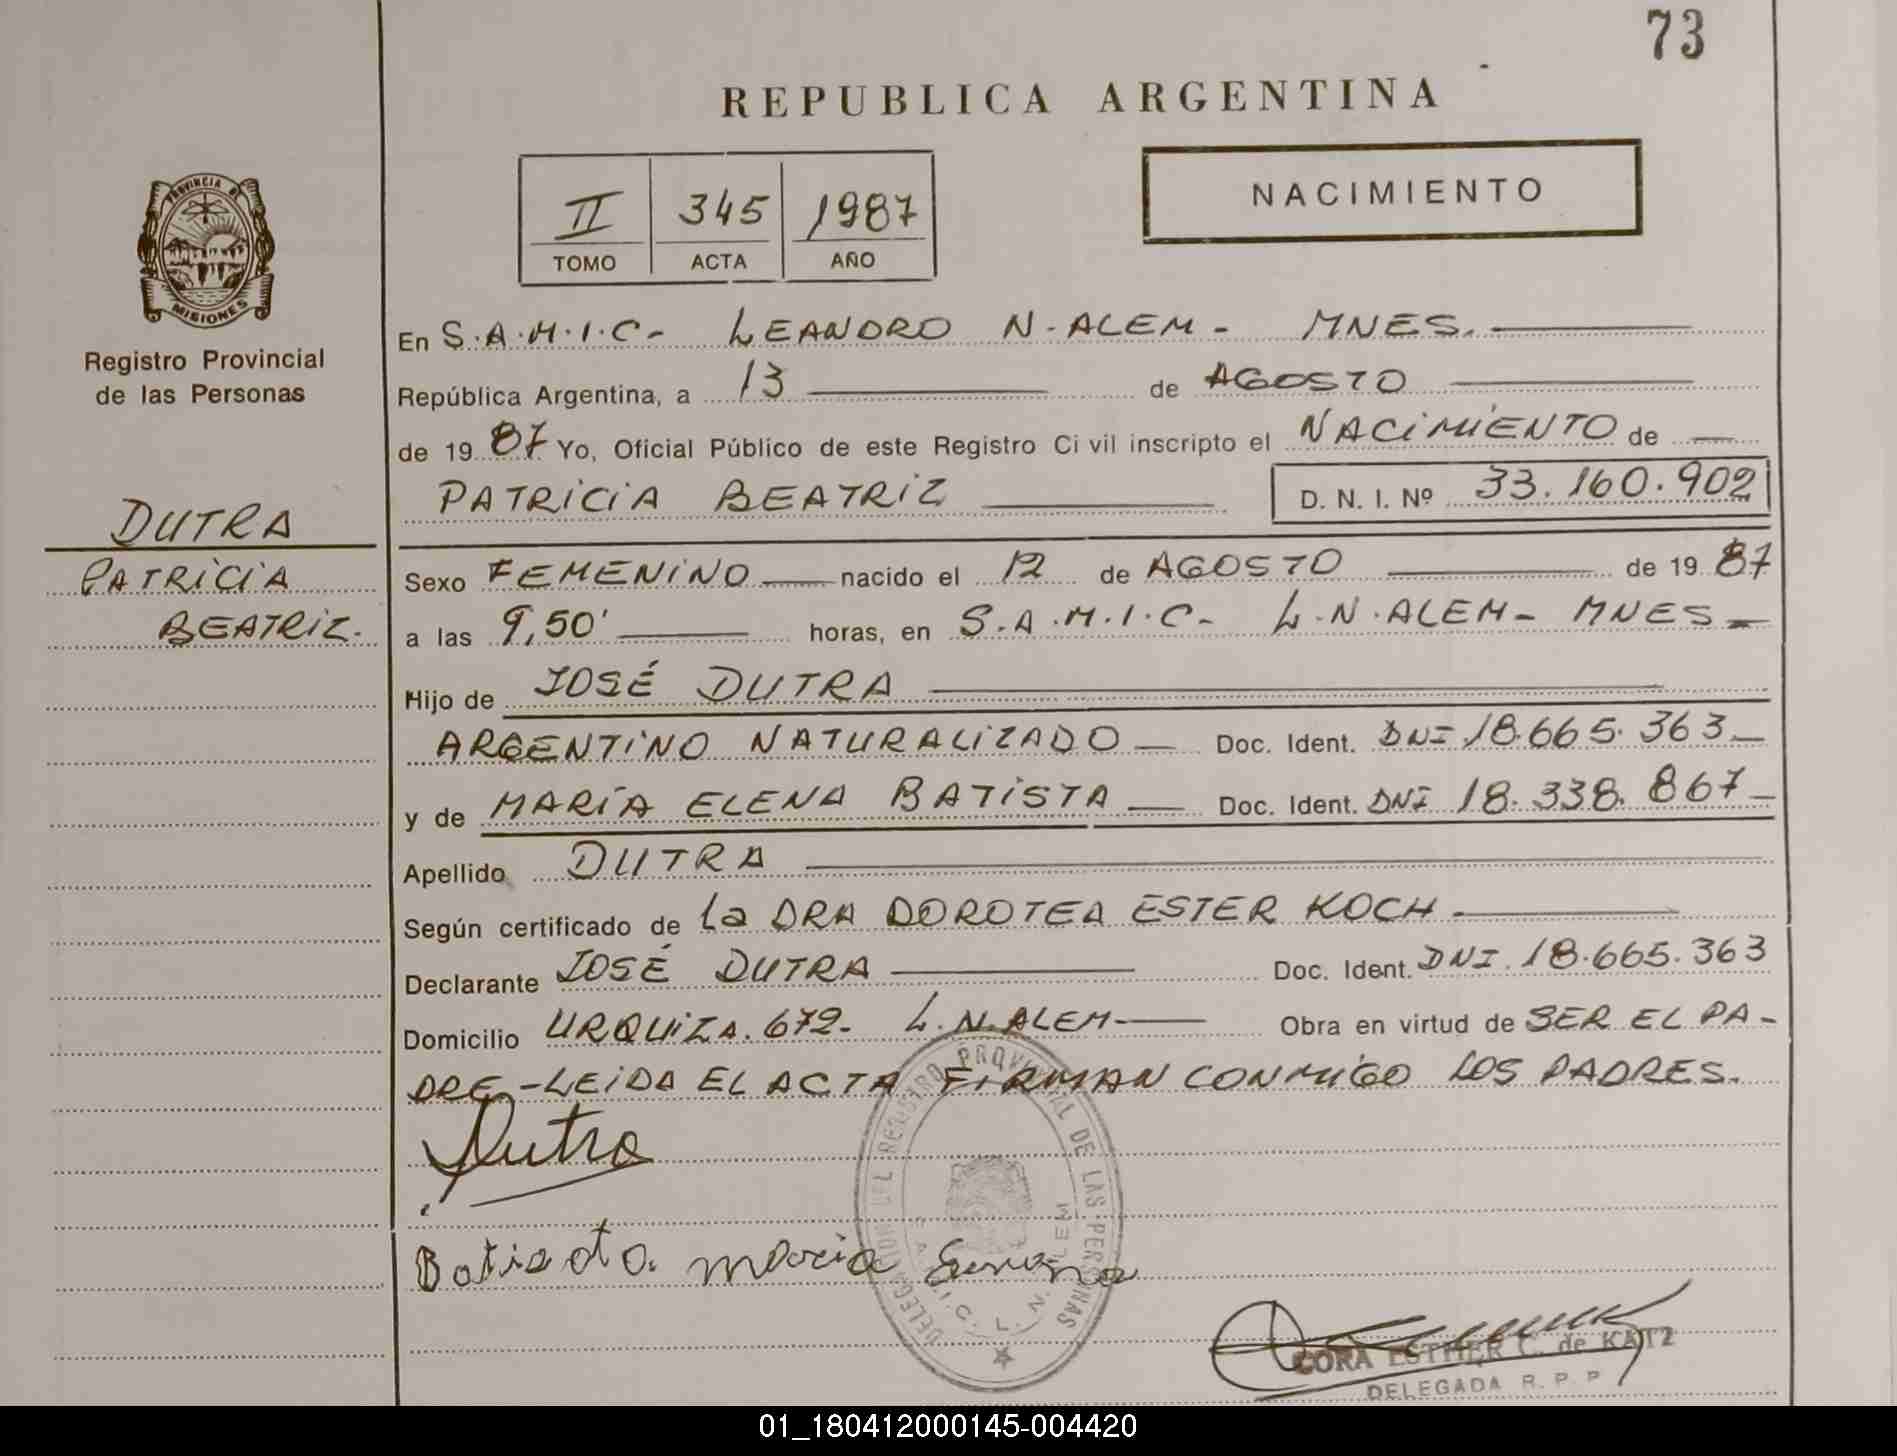 73
REPUBLICA ARGENTINA
NACIMIENTO
II 345 1987
TOMO ACTA AÑO
PROVINCIA DE
MISIONES
Registro Provincial
de las Personas
DUTRA
PATRICIA
BEATRIZ.
En S.A.M.I.C- LEANDRO N-ALEM- MNES.
República Argentina, a 13 de AGOSTO
de 19 87 Yo, Oficial Público de este Registro Ci vil inscripto el NACIMIENTO de
PATRICIA BEATRIZ D. N. I. Nº 33.160.902
Sexo FEMENINO nacido el 12 de AGOSTO de 19 87
a las 9,50' horas, en S.A.M.I.C- L.N.ALEM- MNES-
Hijo de JOSÉ DUTRA
ARGENTINO NATURALIZADO Doc. Ident. DNI 18.665.363-
y de MARÍA ELENA BATISTA Doc. Ident. DNI 18.338.867-
Apellido DUTRA
Según certificado de La DRA DOROTEA ESTER KOCH
Declarante JOSÉ DUTRA Doc. Ident. DNI. 18.665.363
Domicilio URQUIZA.672- L.N.ALEM Obra en virtud de SER EL PA-
DRE-LEIDA EL ACTA FIRMAN CONMIGO LOS PADRES.
Dutra
Batista. maria
DELEGACION DEL REGISTRO PROVINCIAL DE LAS PERSONAS
S.A.M.I.C. L. N. ALEM
CORA ESTHER C. de KATZ
DELEGADA R. P. P
01_180412000145-004420